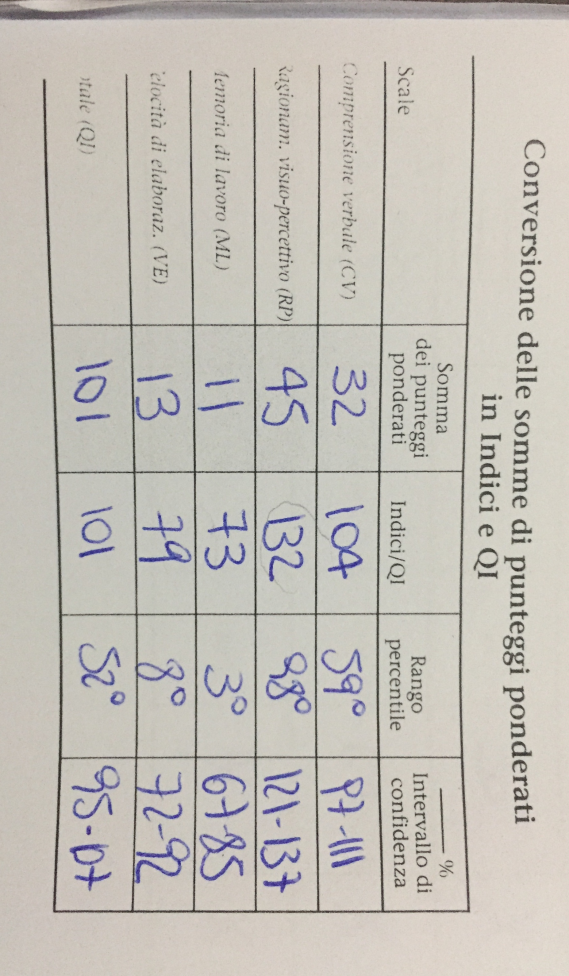 Conversione delle somme di punteggi ponderati
in Indici e QI
Scale Somma dei punteggi ponderati Indici/QI Rango percentile ____% Intervallo di confidenza
Comprensione verbale (CV) 32 104 59° 97-111
Ragionam. visuo-percettivo (RP) 45 132 98° 121-137
emoria di lavoro (ML) 11 73 3° 67-85
elocità di elaboraz. (VE) 13 79 8° 72-92
otale (QI) 101 101 52° 95-107